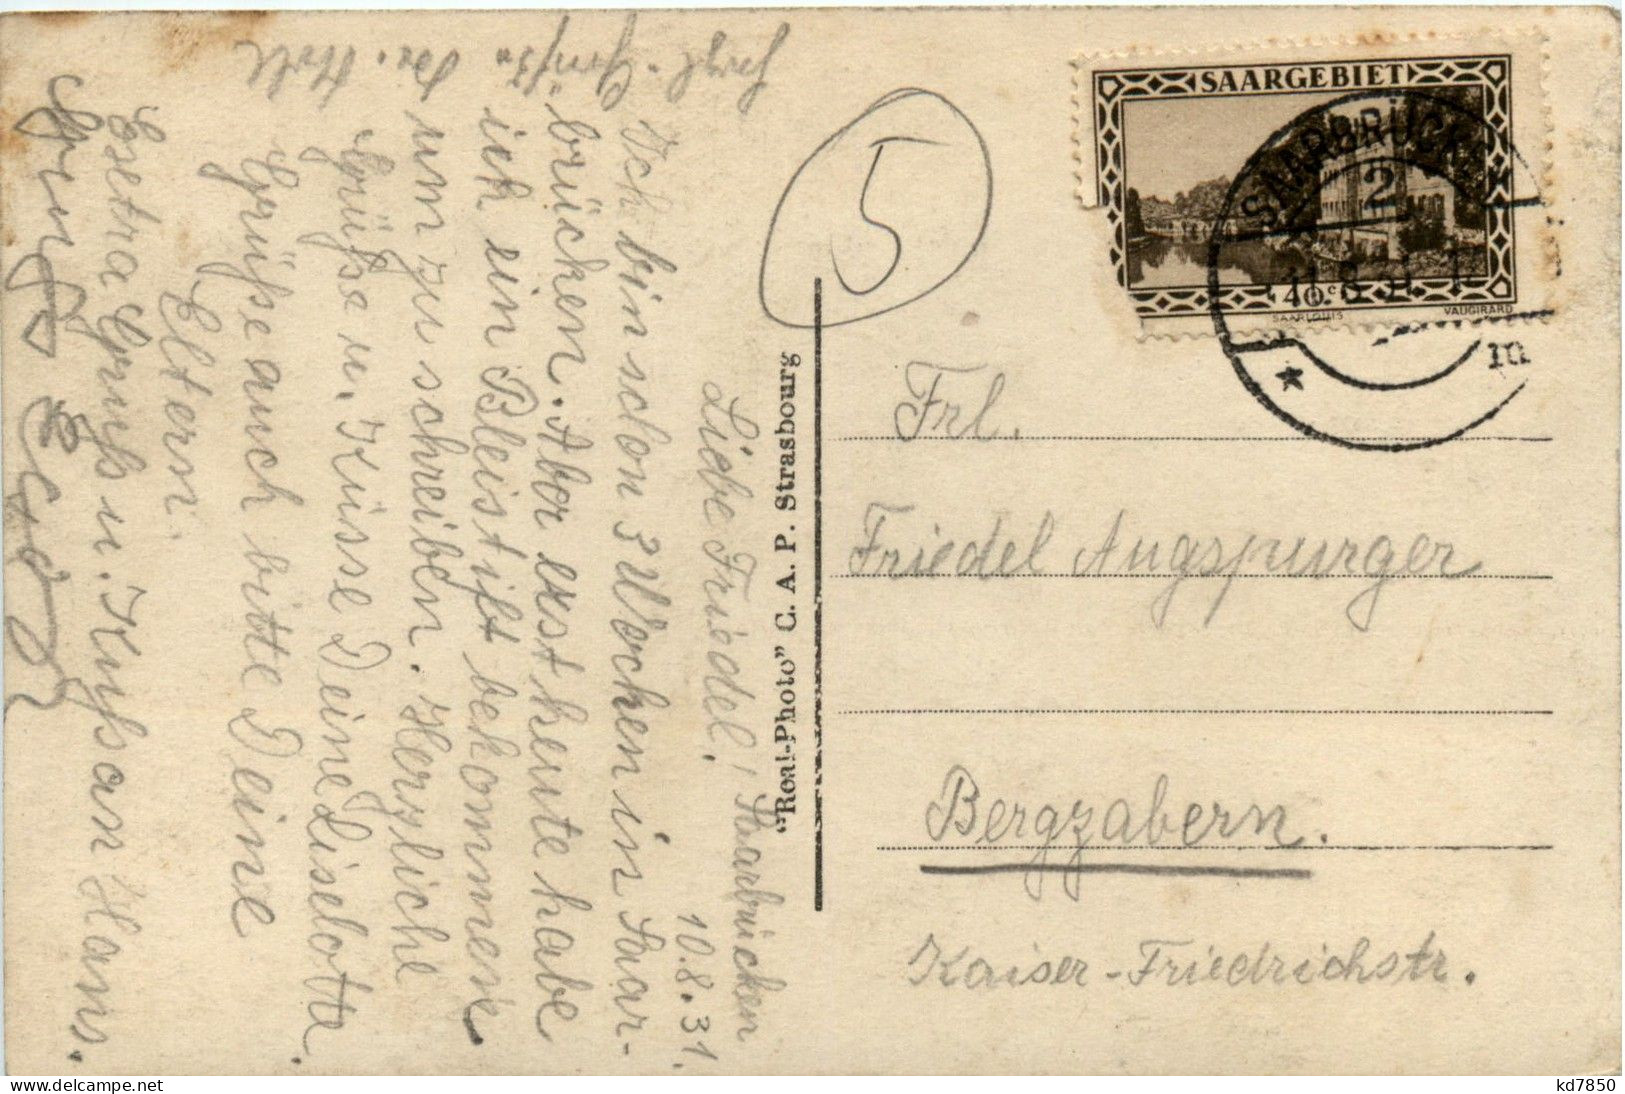 Saarbrücken
10.8.31.
Liebe Friedel!
Ich bin schon 3 Wochen in Saar-
brücken. Aber erst heute habe
ich ein Bleistift bekommen
um zu schreiben. Herzliche
Grüße u. Küsse Deine Liselotte.
Grüße auch bitte Deine
Eltern.
Extra Gruß u. Kuß an Hans.
Gruß
5
"Real-Photo" C. A. P. Strasbourg
SAARGEBIET
40 c
SAARLOUIS
VAUGIRARD
SAARBRÜCKEN
2
Frl.
Friedel Augspurger
Bergzabern.
Kaiser-Friedrichstr.
kd7850